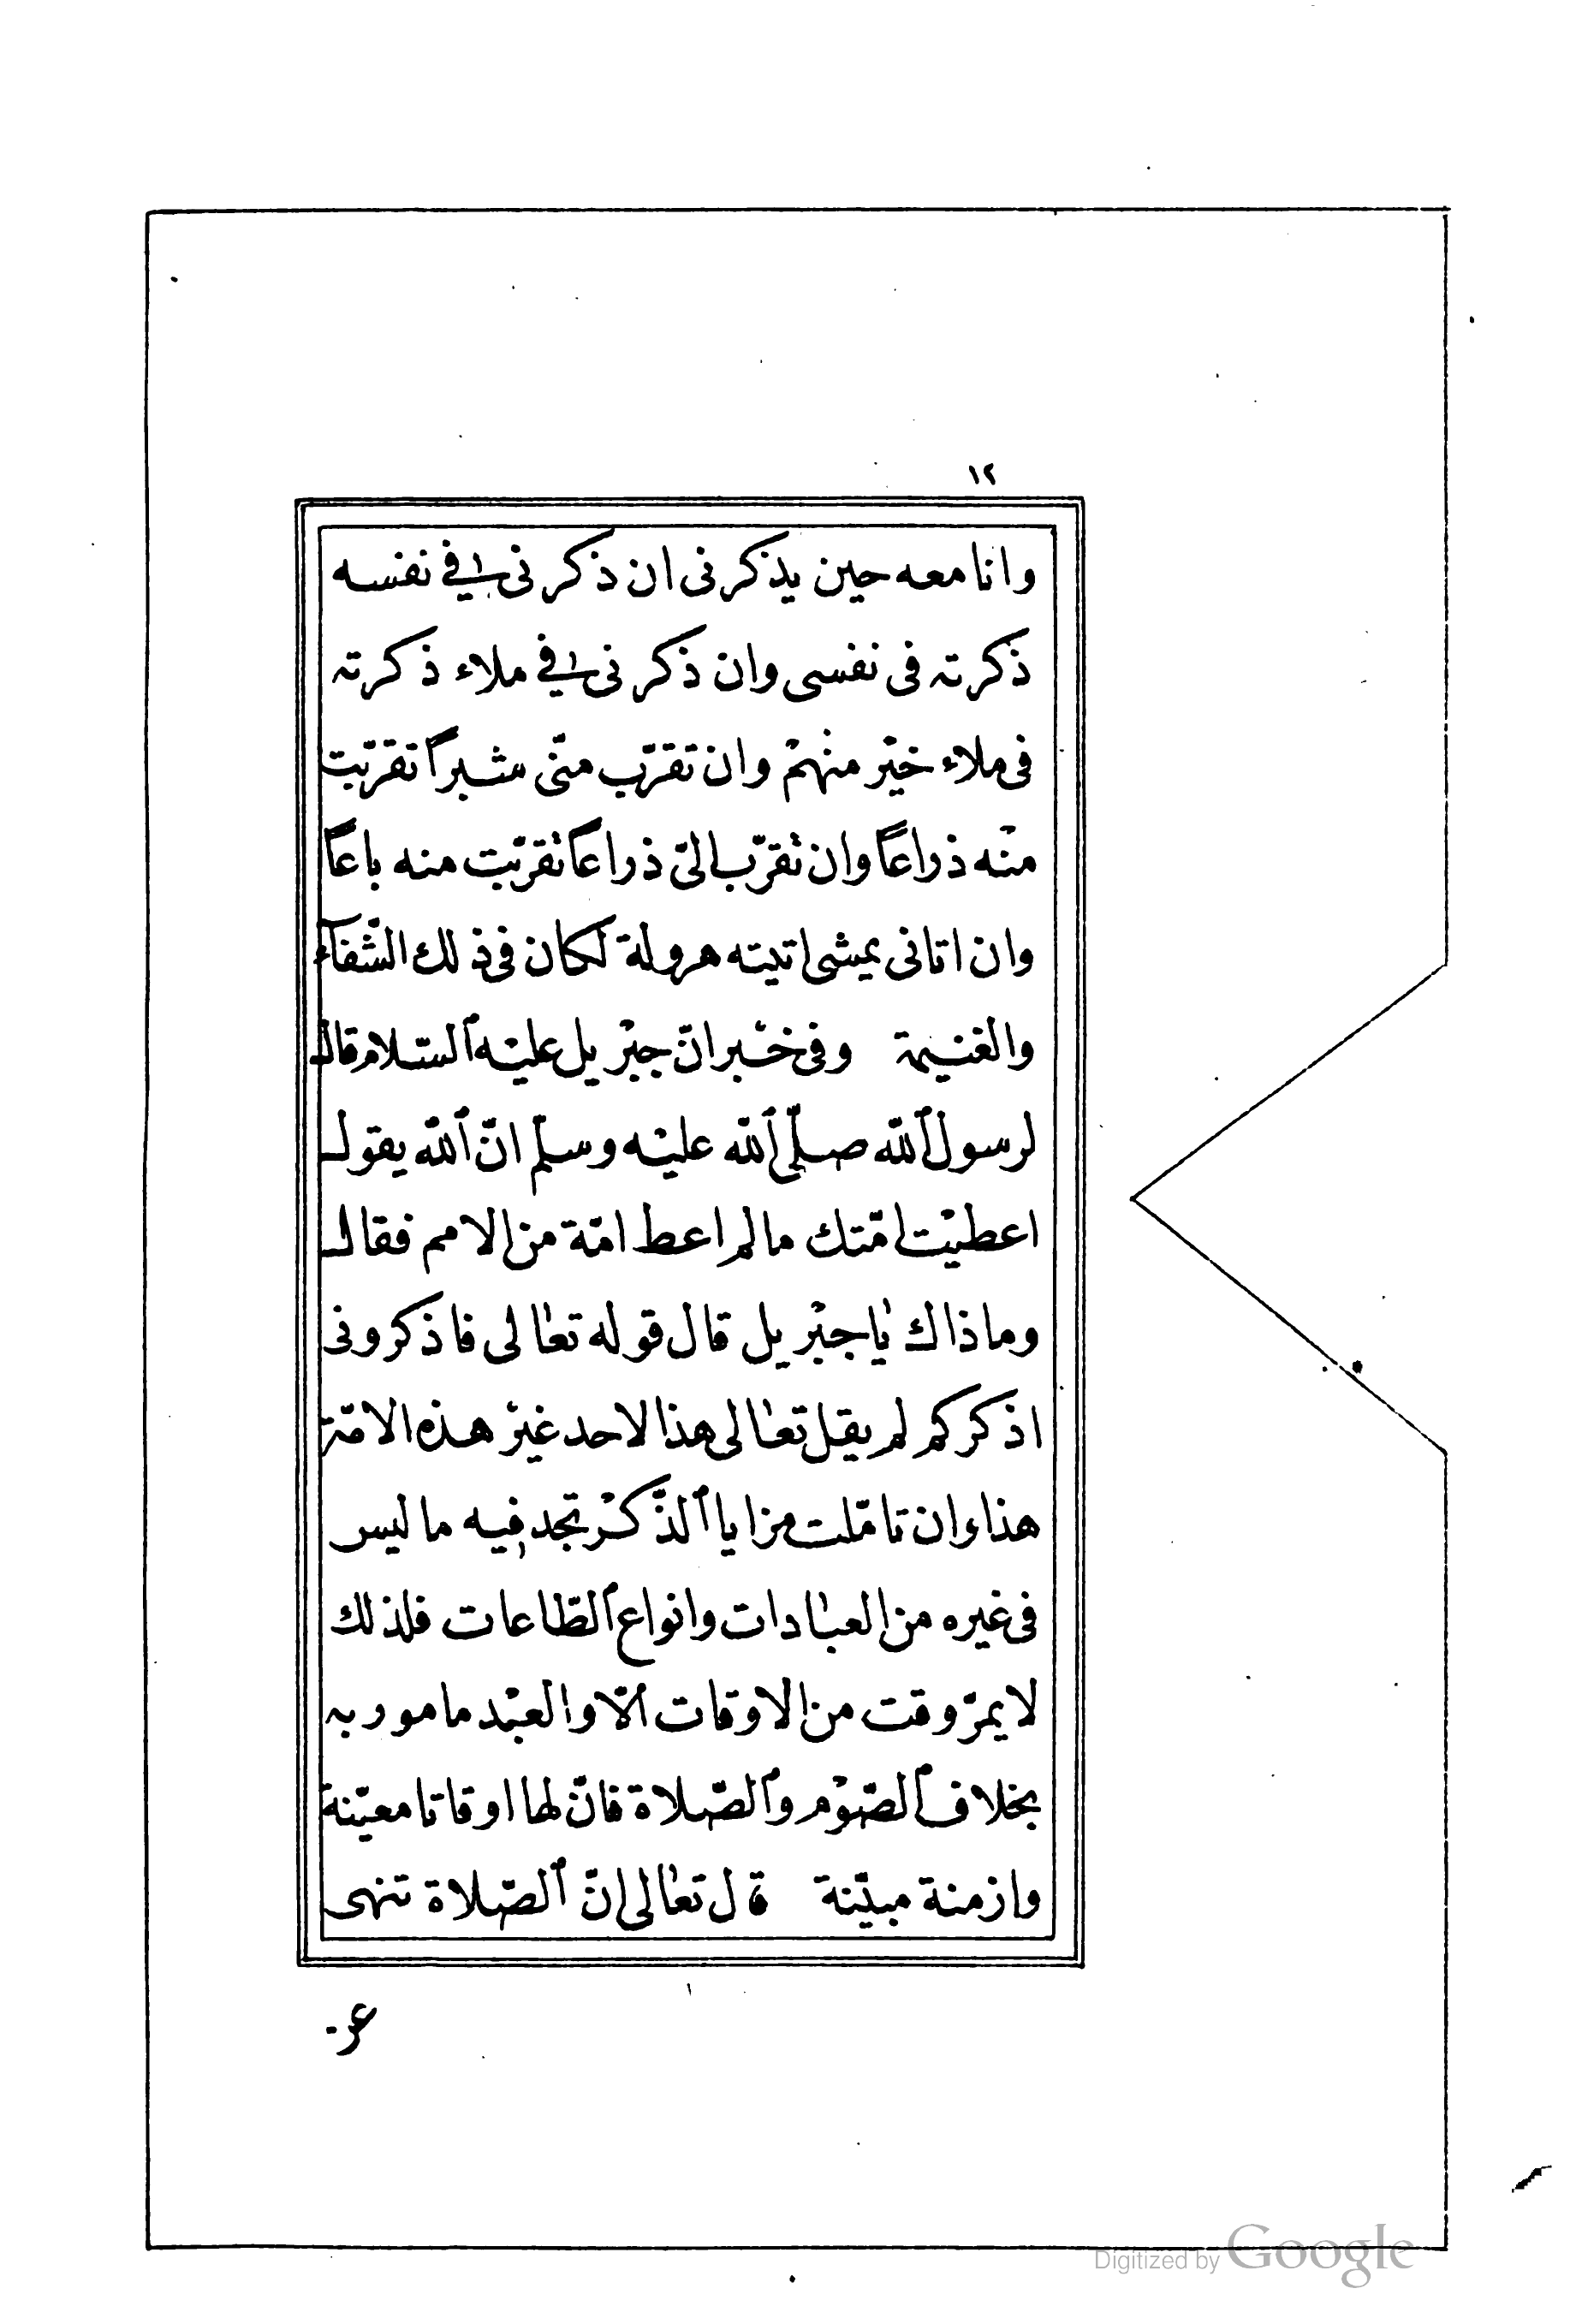 ١٢
وانا معه حين يذكرنى ان ذكرنى فى نفسه
ذكرته فى نفسى وان ذكرنى فى ملاء ذكرته
فى ملاء خيْر منْهمْ وان تقرّب منّى شبراً تقرّبت
منْه ذراعًا وان تقرّب الىّ ذراعاً تقرّبت منه باعًا
وان اتانى يمشى اتيته هرولة لكان فى ذلك الشّفآء
والغنيمة وفى خبر انّ جبْريل عليْه ٱلسّلام قال
لرسول ٱللّه صلّى ٱللّه عليْه وسلّم انّ ٱللّه يقول
اعطيْت امّتك مالم اعط امّة من الامم فقال
وما ذاك يٰا جبْريل قال قوله تعٰالى فاذكرونى
اذكركم لم يقل تعٰالى هذا لاحد غيْر هذه الامّة
هذا وان تامّلت مزايا ٱلذّكْر تجد فيه ما ليس
فى غيره من العبٰادات وانواع ٱلطّاعات فلذلك
لا يمرّ وقت من الاوقات الّا والعبْد مامور به
بخلاف ٱلصّوْم وٱلصّلاة فانّ لها اوقاتا معيّنة
وازمنة مبيّنة قال تعٰالى انّ ٱلصّلاة تنهى
عن
Digitized by Google